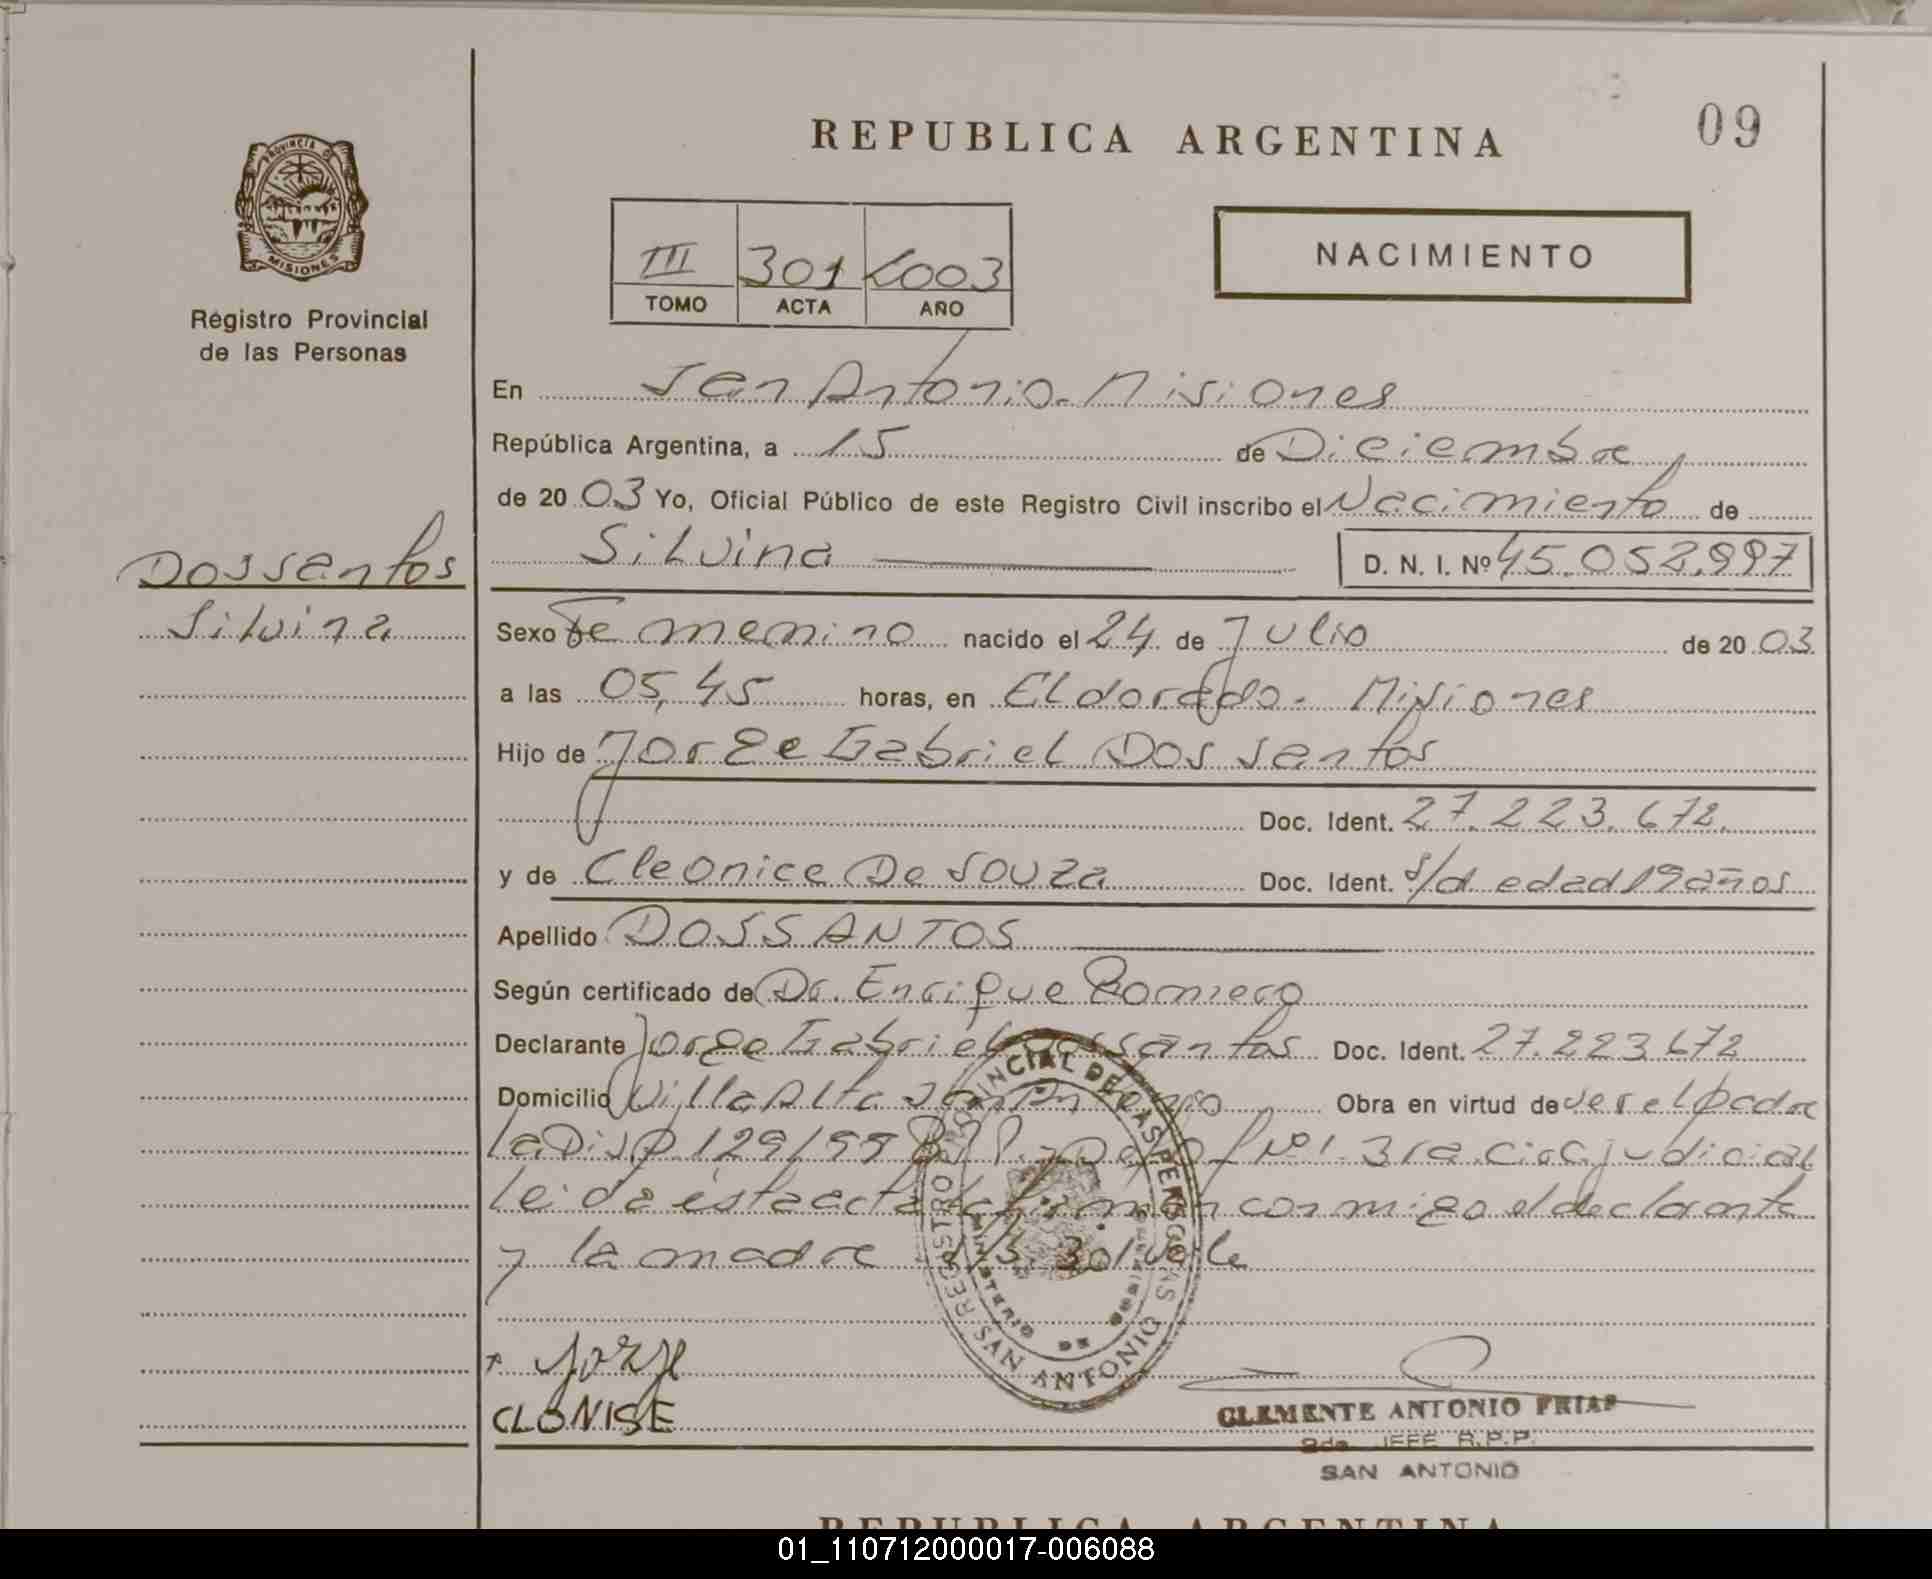 REPUBLICA ARGENTINA
09
PROVINCIA DE
MISIONES
Registro Provincial
de las Personas
III 301 2003
TOMO ACTA AÑO
NACIMIENTO
En San Antonio. Misiones
República Argentina, a 15 de Diciembre
de 20 03 Yo, Oficial Público de este Registro Civil inscribo el Nacimiento de
Silvina D. N. I. Nº 45.052.997
Dossantos
Silvina
Sexo Femenino nacido el 24 de Julio de 20 03
a las 05,45 horas, en Eldorado. Misiones
Hijo de Jorge Gabriel Dos santos
Doc. Ident. 27.223.672.
y de Cleonice De Souza Doc. Ident. s/d edad 19 años
Apellido DOSSANTOS
Según certificado de Dr. Enrique Romero
Declarante Jorge Gabriel Dossantos Doc. Ident. 27.223.672
Domicilio Villa Alta San Antonio Obra en virtud de ser el padre
la Disp. 129/99 Nº 1. 3ra. Circ. judicial
Leida esta acta la firman conmigo el declarante
y la madre
REGISTRO PROVINCIAL DE LAS PERSONAS
MINISTERIO DE GOBIERNO
SAN ANTONIO
Jorge
CLONISE
CLEMENTE ANTONIO FRIAS
2do. JEFE R.P.P.
SAN ANTONIO
REPUBLICA ARGENTINA
01_110712000017-006088